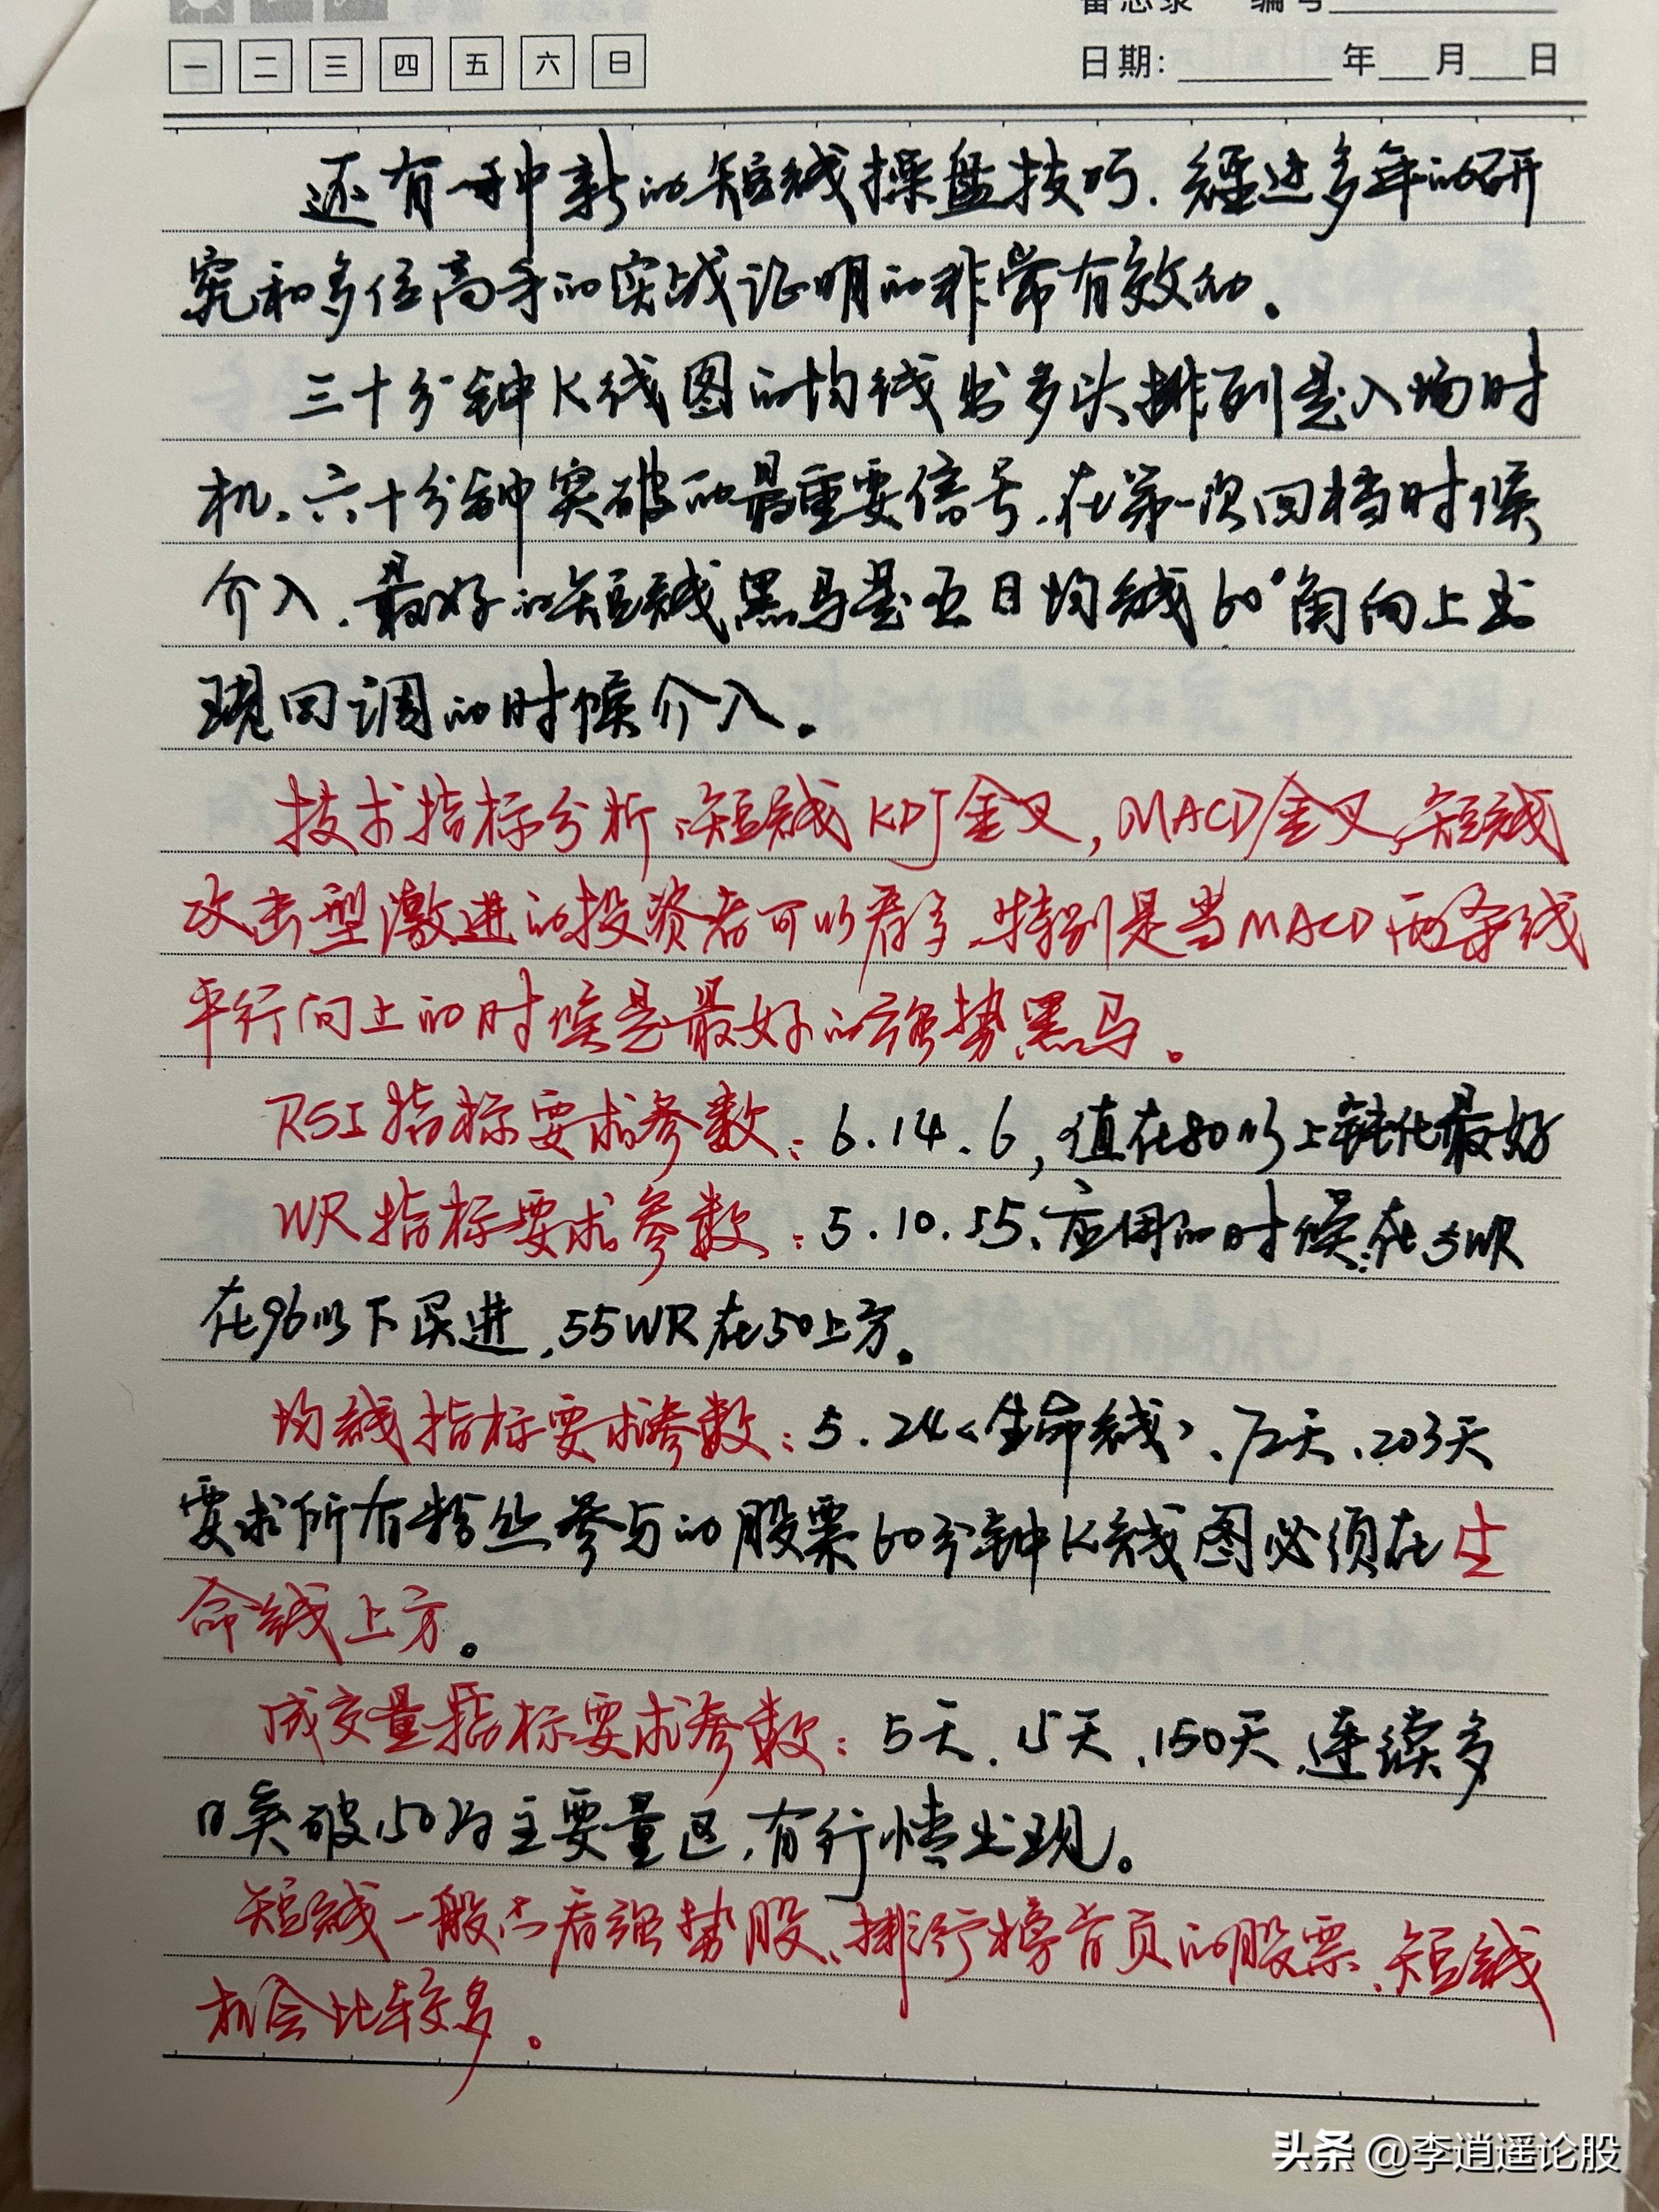 备忘录 编号
一 二 三 四 五 六 日
日期: 年 月 日
还有一种新的短线操盘技巧.经过多年的研
究和多位高手的实战证明的非常有效的。
三十分钟K线图的均线出多头排列是入场时
机、六十分钟突破的最重要信号、在第一次回档时候
介入、最好的短线黑马是五日均线60°角向上出
现回调的时候介入。
技术指标分析、短线KDJ金叉,MACD金叉,短线
攻击型激进的投资者可以看多、特别是当MACD两条线
平行向上的时候是最好的强势黑马。
RSI指标要求参数:6.14.6,值在80以上钝化最好
WR指标要求参数:5.10.55、应用的时候.在5WR
在96以下买进、55WR在50上方。
均线指标要求参数:5.24<生命线>、72天、203天
要求所有粉丝参与的股票60分钟K线图必须在生
命线上方。
成交量指标要求参数:5天、15天、150天、连续多
日突破150为主要量区、有行情出现。
短线一般只看强势股、排行榜首页的股票、短线
机会比较多。
头条 @李逍遥论股